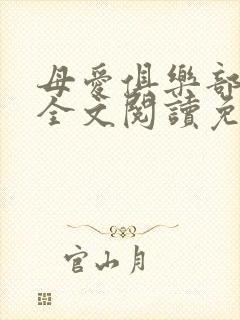 母愛俱樂部
全文閱讀免
官山月